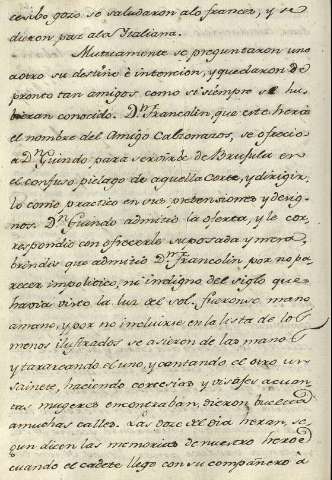 cesibo gozo se saludaron alo frances, y se
dieron paz ala Italiana.
Mutuamente se preguntaron uno
aotro su destino è intención, y quedaron de
pronto tan amigos como si siempre se hu-
bieran conocido. Dn. Francolin, que este herà
el nombre del Amigo Calsonazos, se ofrecio
a Dn. Guindo para servirle de Brufula en
el confuso pielago de aquella Corte, y dirigir
lo como practico en sus pretensiones y desig-
nos. Dn. Guindo admitio la oferta, y le cor
respondio con ofrecerle su posada y mesa,
brindis que admitio Dn. Francolin por no pa
recer impolitico, ni indigno del siglo que
havia visto la luz del sol. fueronse mano
amano, y por no incluirse en la lista de los
menos ilustrados se asieron de las manos
y tarareando el uno, y cantando el otro un
sainete, haciendo cortesias y visajes acuan
tas mugeres encontraban, dieron bueltas
amuchas calles. Las doce del dia heran, se
gun dicen las memorias de nuestro heroe
cuando el cadete llego con su compañero à